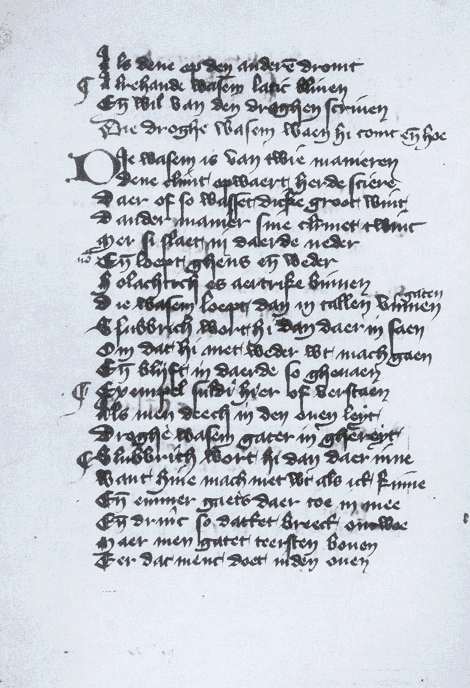 Als dene op den anderē dromt
¶ Alrehande wasem latic bliuen
Eñ wil van den droghen scriuen
Die droghe wasem waen hi comt eñ hoe
Die wasem is van twie manieren
dene clint opwaert herde sciere
Daer of so wasset dicke groot wint
Dander manier sine climet twint
Mer si slaet in daerde neder
Eñ loept ghens eñ weder
holachtich es aertrike binnen
Die wasem loept dan in tallen gaten binnen
Slubbrich wort hi dan daer in saen
Om dat hi niet weder wt mach gaen
Eñ blijft in daerde so gheuaen
¶ Exempel suldi hier of verstaen
Als men deech in den ouen leyt
Droghe wasem gater in ghereyt
¶ Slubbrich wort hi dan daer inne
Want hine mach niet wt als ick kinne
Eñ emmer gaets daer toe in mee
Eñ drinc so dattet breect ontwee
Maer men gatet teersten bouen
Eer dat ment doet inden ouen